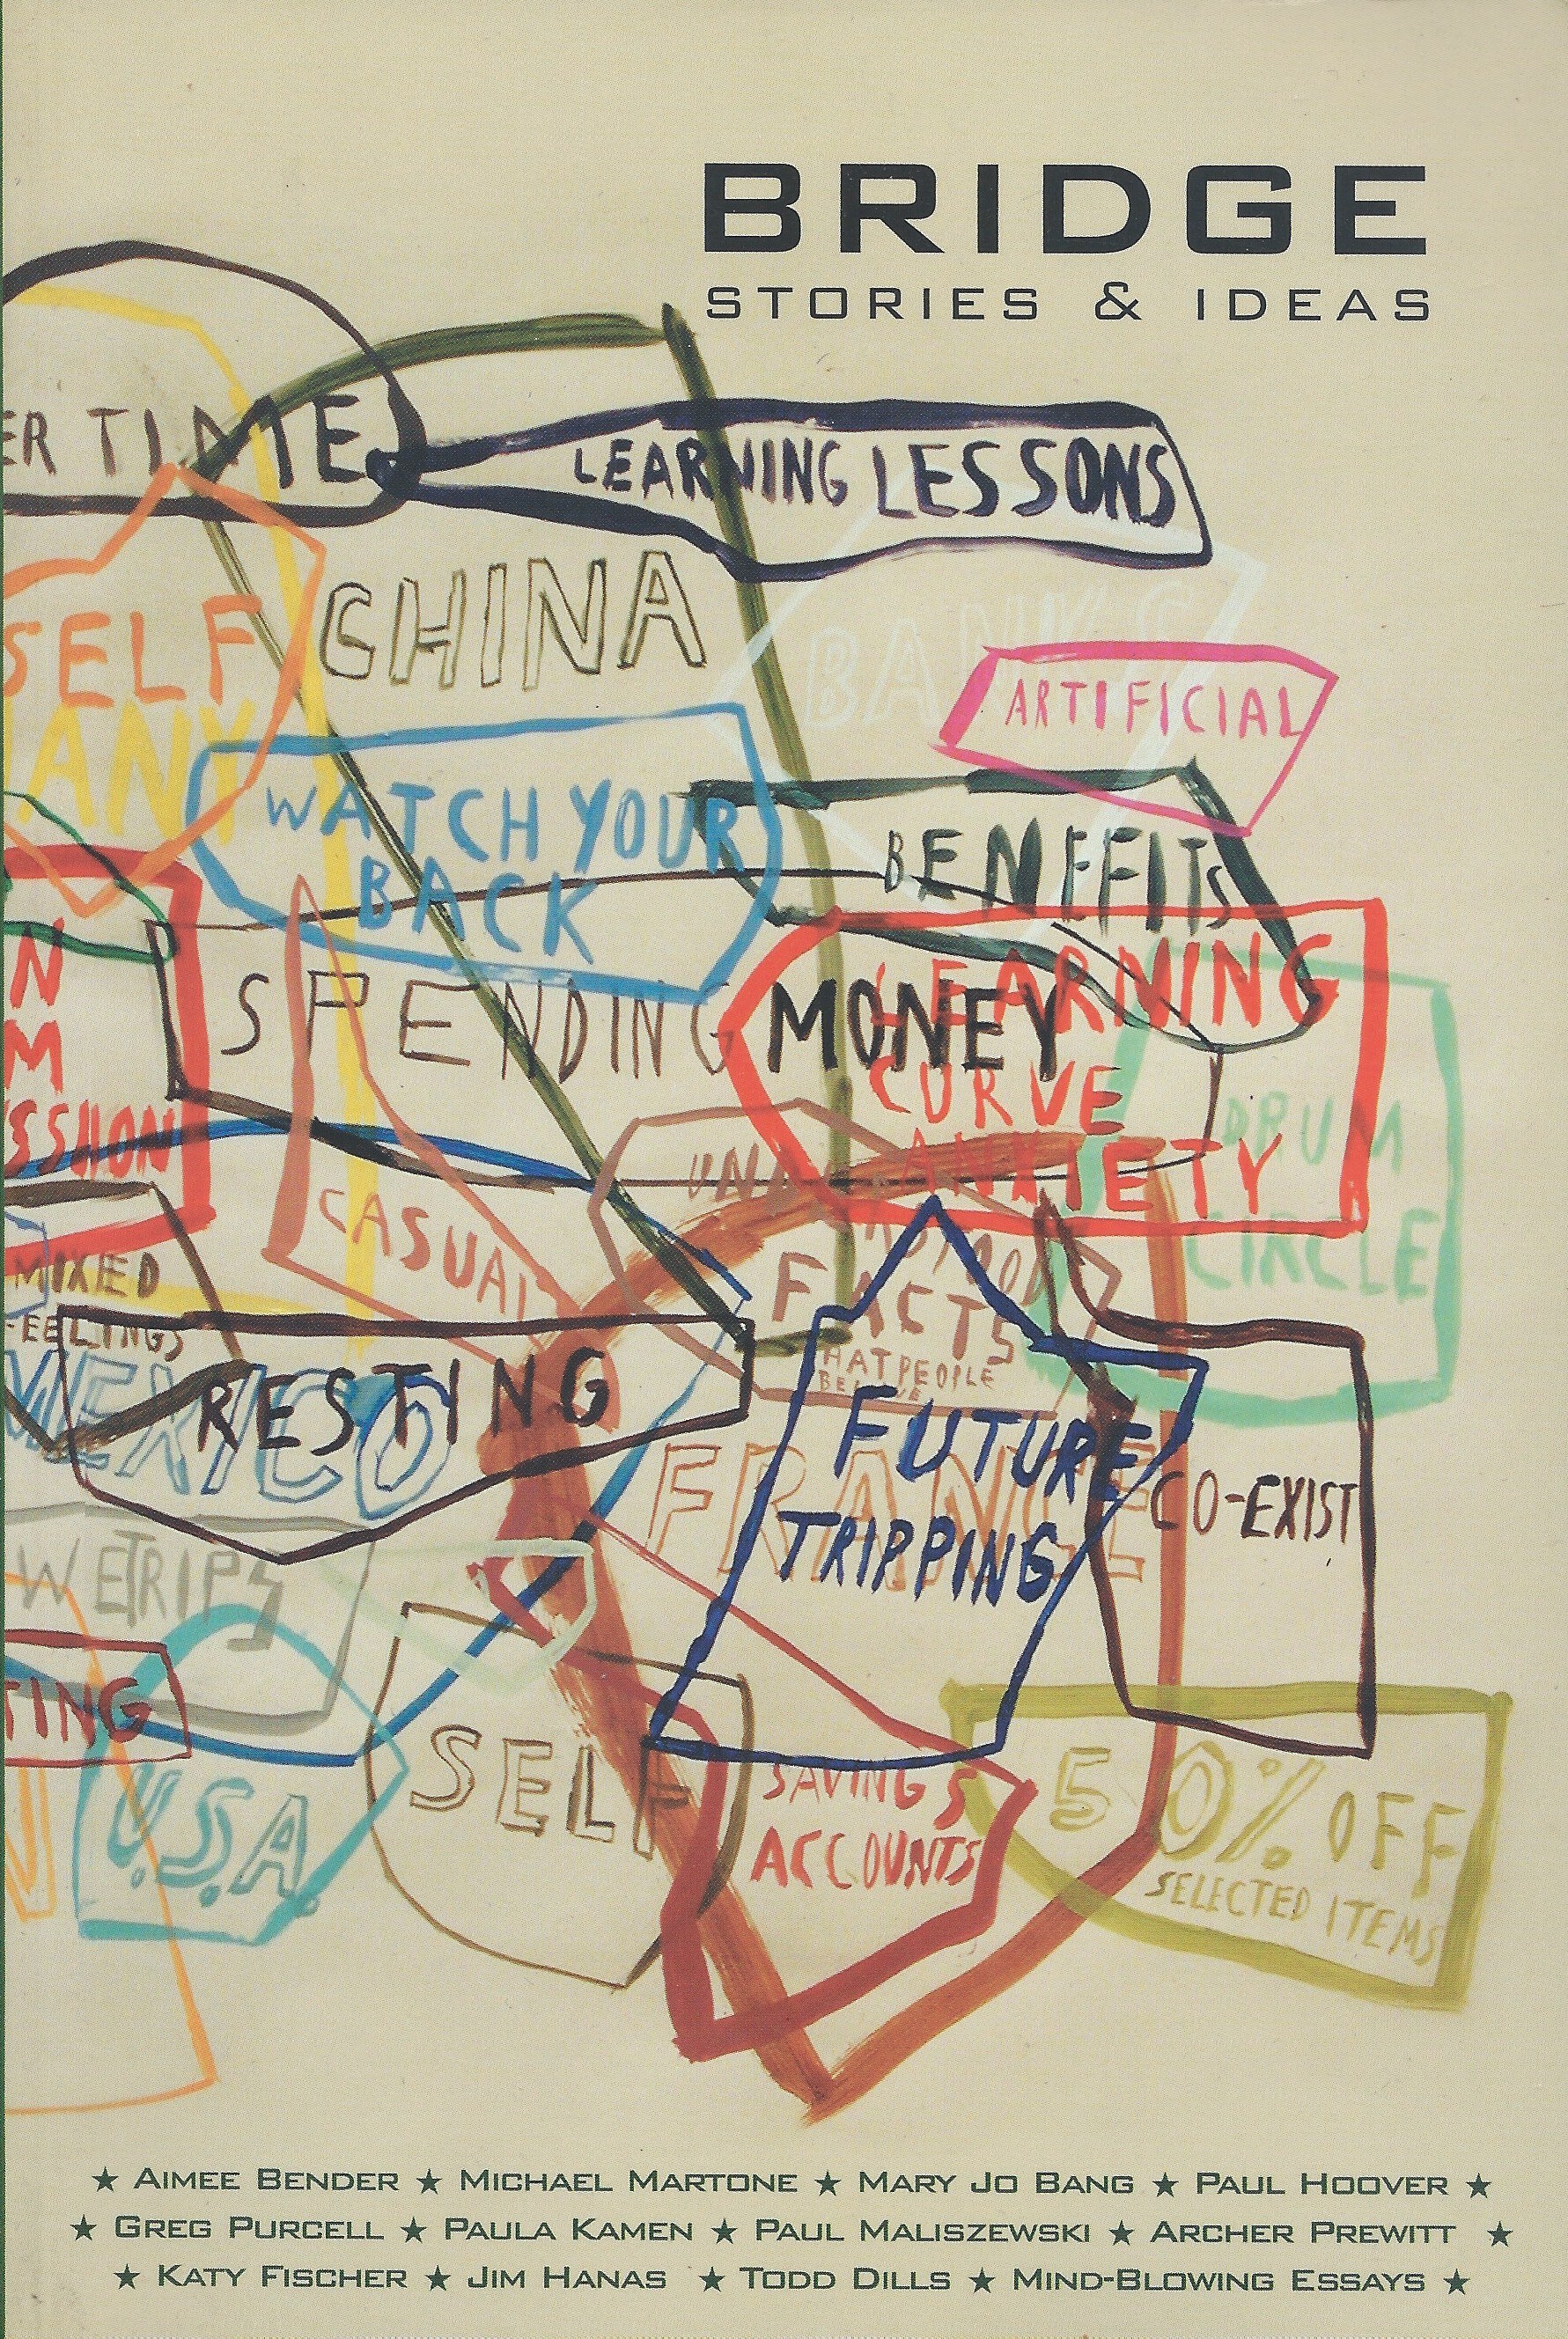 BRIDGE
STORIES & IDEAS
ER TIME
LEARNING LESSONS
CHINA
BANKS
SELF
ARTIFICIAL
ANY
WATCH YOUR
BACK
BENEFITS
LEARNING
SPENDING MONEY
CURVE
ANXIETY
DRUM
CIRCLE
N
M
ESSION
CASUAL
FACTS
HAT PEOPLE
MIXED
FEELINGS
MEXICO
RESTING
FUTURE
TRIPPING
FRANCE
CO-EXIST
WETRIPS
TING
U.S.A.
SELF
SAVINGS
ACCOUNTS
50% OFF
SELECTED ITEMS
★ AIMEE BENDER ★ MICHAEL MARTONE ★ MARY JO BANG ★ PAUL HOOVER ★
★ GREG PURCELL ★ PAULA KAMEN ★ PAUL MALISZEWSKI ★ ARCHER PREWITT ★
★ KATY FISCHER ★ JIM HANAS ★ TODD DILLS ★ MIND-BLOWING ESSAYS ★